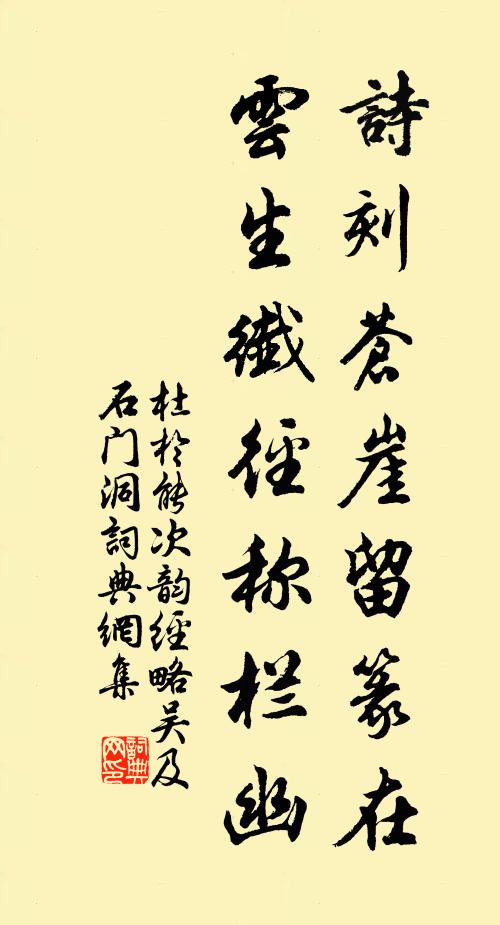 詩刻蒼崖留篆在
雲生纖徑称栏幽
杜柃能次韵經略吴及
石门洞詞典網集
詞典网印